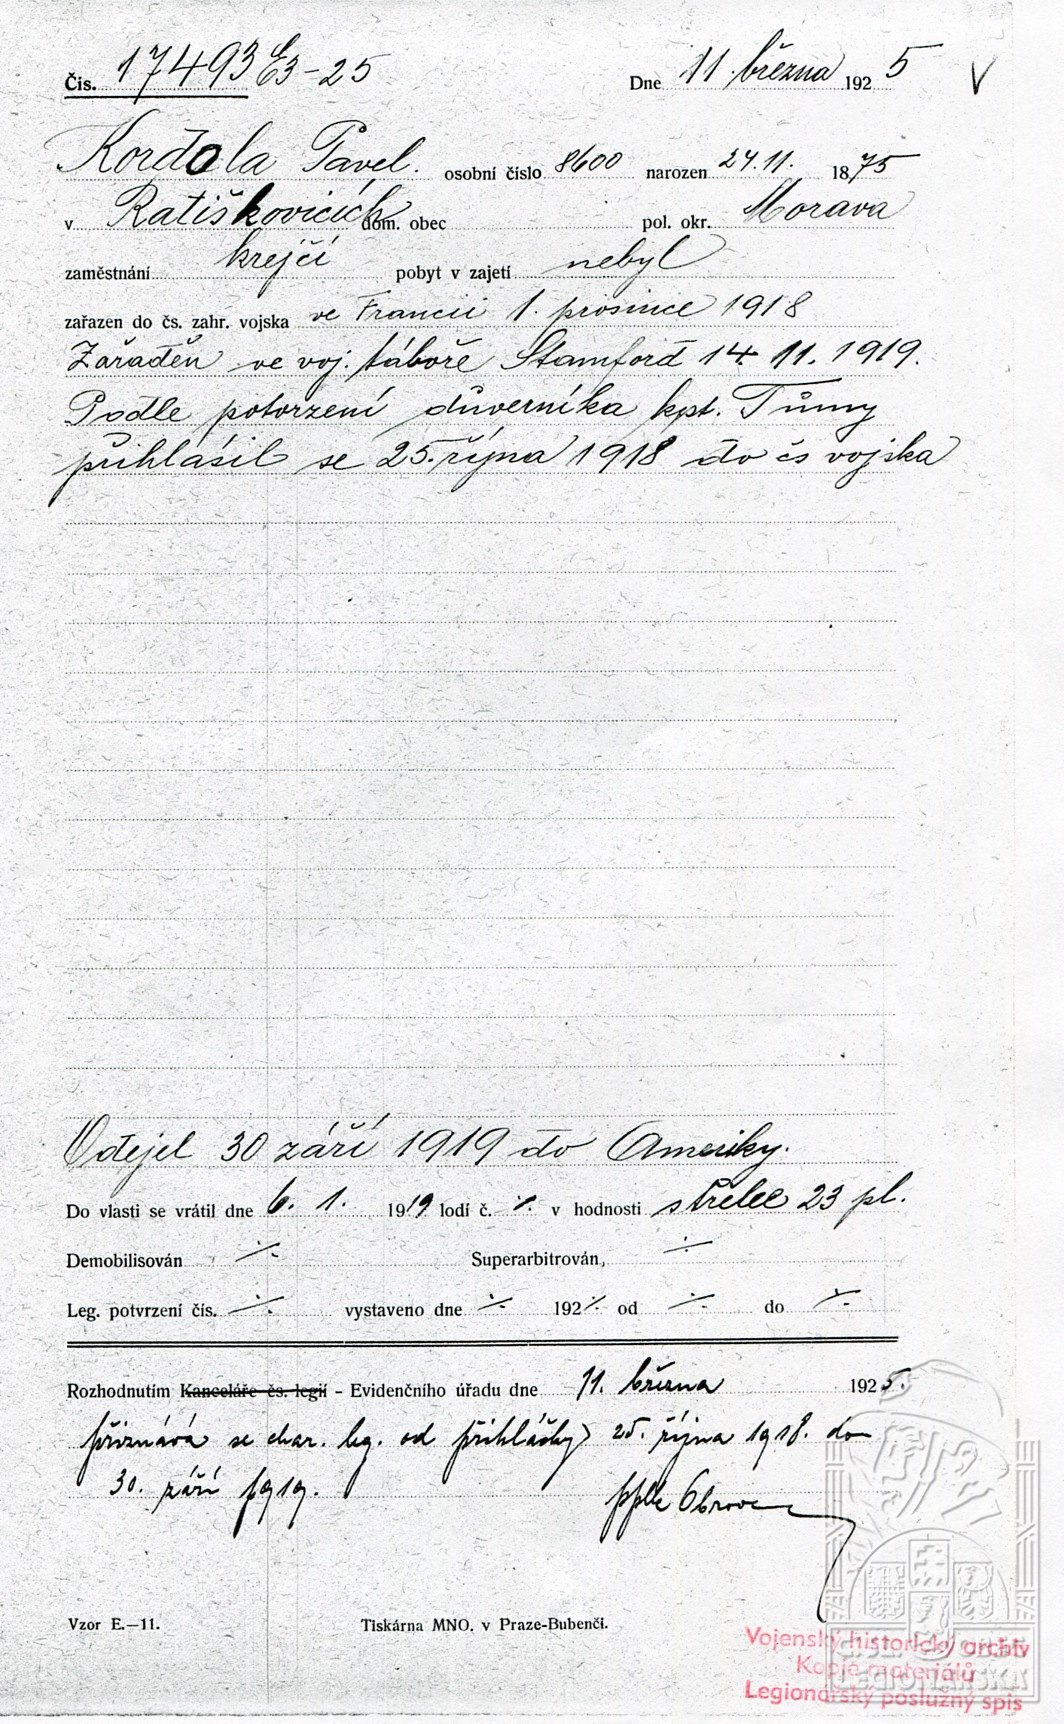 Čís. 17493 E3-25 Dne 11 března 1925 V
Kordola Pavel. osobní číslo 8600 narozen 24.11. 1875
v Ratiškovicích dom. obec pol. okr. Morava
zaměstnání krejčí pobyt v zajetí nebyl
zařazen do čs. zahr. vojska ve Francii 1. prosince 1918
Zařaděn ve voj. táboře Stamford 14. 11. 1919.
Podle potvrzení důverníka kpt. Tůmy
přihlásil se 25. října 1918 do čs vojska
Odejel 30 září 1919 do Ameriky.
Do vlasti se vrátil dne 6. 1. 1919 lodí č. ∕. v hodnosti střelec 23 pl.
Demobilisován ·∕. Superarbitrován, ·∕.
Leg. potvrzení čís. ·∕. vystaveno dne ·∕. 192·∕. od ·∕. do ·∕.
Rozhodnutím Kanceláře čs. legií - Evidenčního úřadu dne 11. března 1925.
přiznává se char. leg. od přihlášky 25. října 1918. do
30. září 1919.
Vzor E.—11. Tiskárna MNO. v Praze-Bubenči.
Vojenský historický archiv
Kopie materiálů
Legionářský poslužný spis
LEGIONÁŘSKÁ